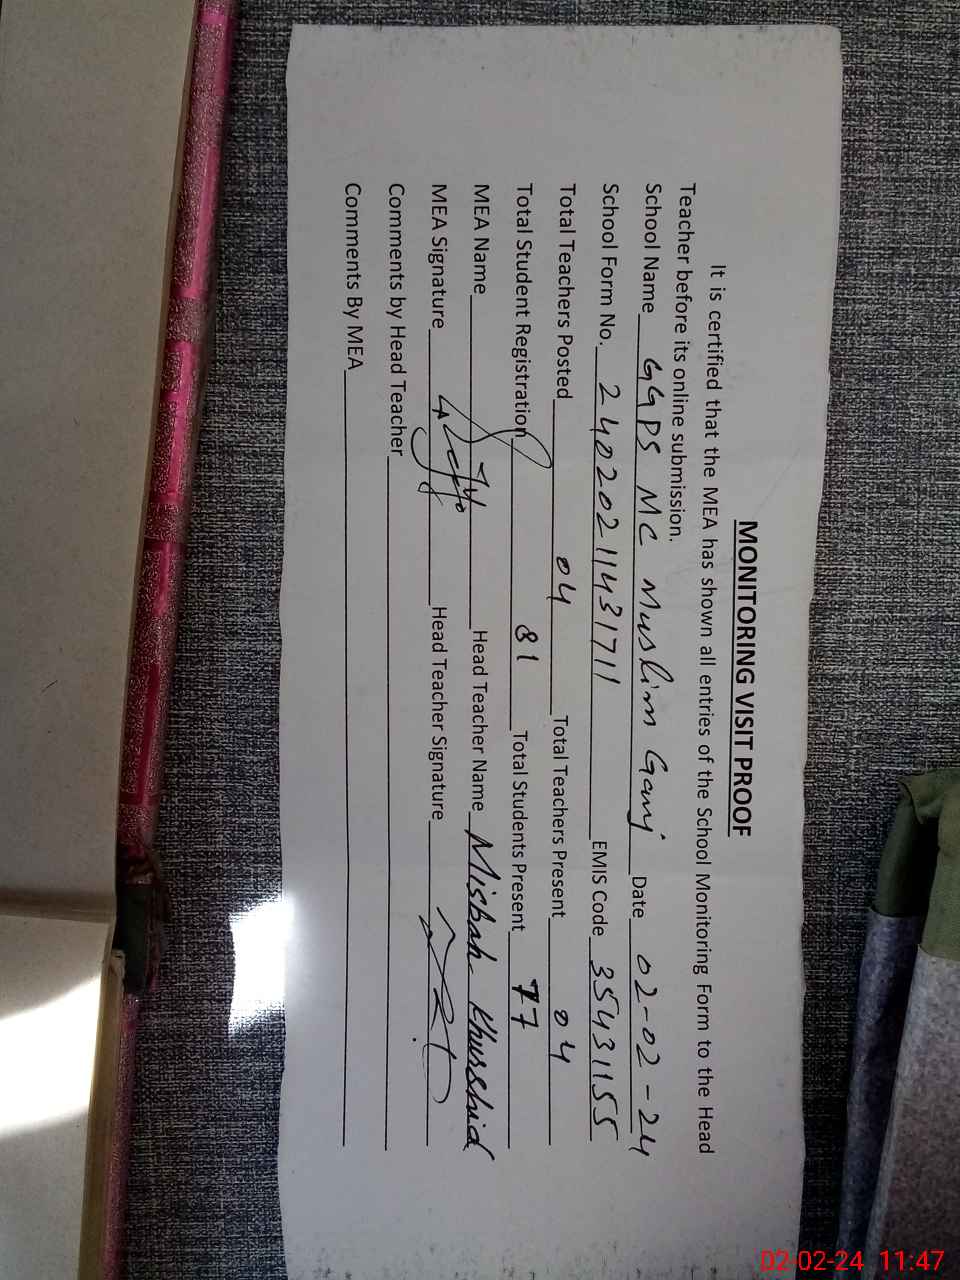 MONITORING VISIT PROOF
It is certified that the MEA has shown all entries of the School Monitoring Form to the Head
Teacher before its online submission.
School Name GGPS MC Muslim Ganj Date 02-02-24
School Form No. 24020211431711 EMIS Code 35431155
Total Teachers Posted 04 Total Teachers Present 04
Total Student Registration 81 Total Students Present 77
MEA Name Head Teacher Name Misbah Khurshid
MEA Signature Head Teacher Signature
Comments by Head Teacher
Comments By MEA
02-02-24 11:47